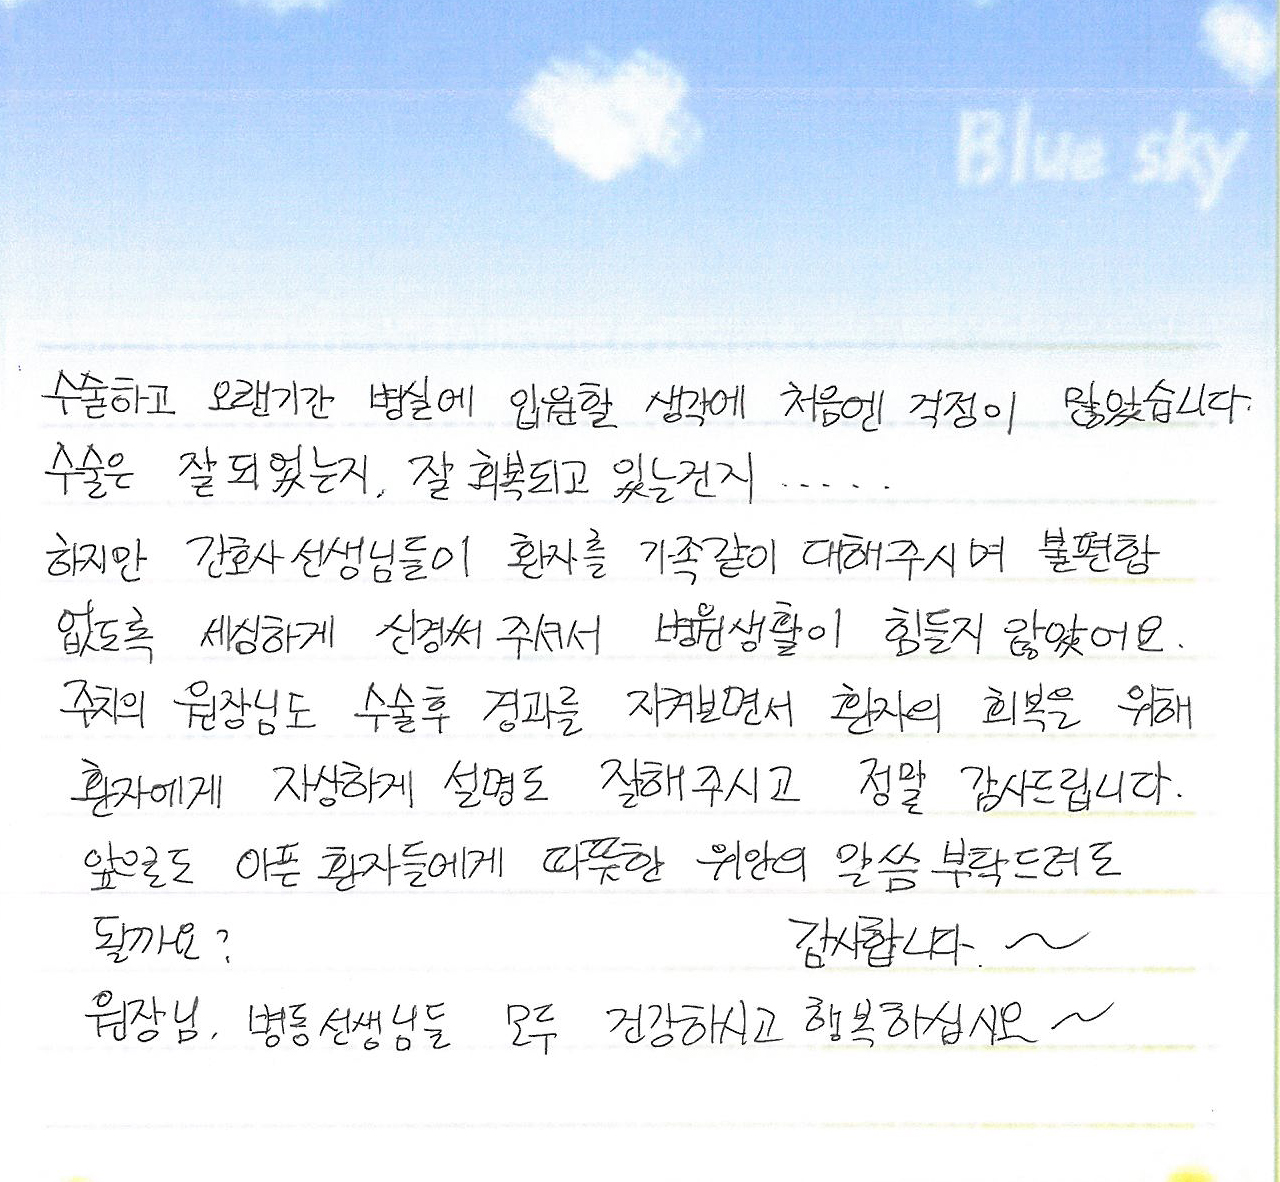 Blue sky
수술하고 오랜기간 병실에 입원할 생각에 처음엔 걱정이 많았습니다.
수술은 잘 되었는지, 잘 회복되고 있는건지 .....
하지만 간호사 선생님들이 환자를 가족같이 대해주시며 불편함
없도록 세심하게 신경써 주셔서 병원생활이 힘들지 않았어요.
주치의 원장님도 수술후 경과를 지켜보면서 환자의 회복을 위해
환자에게 자상하게 설명도 잘해주시고 정말 감사드립니다.
앞으로도 아픈 환자들에게 따뜻한 위안의 말씀 부탁드려도
될까요? 감사합니다. ~
원장님, 병동선생님들 모두 건강하시고 행복하십시오 ~